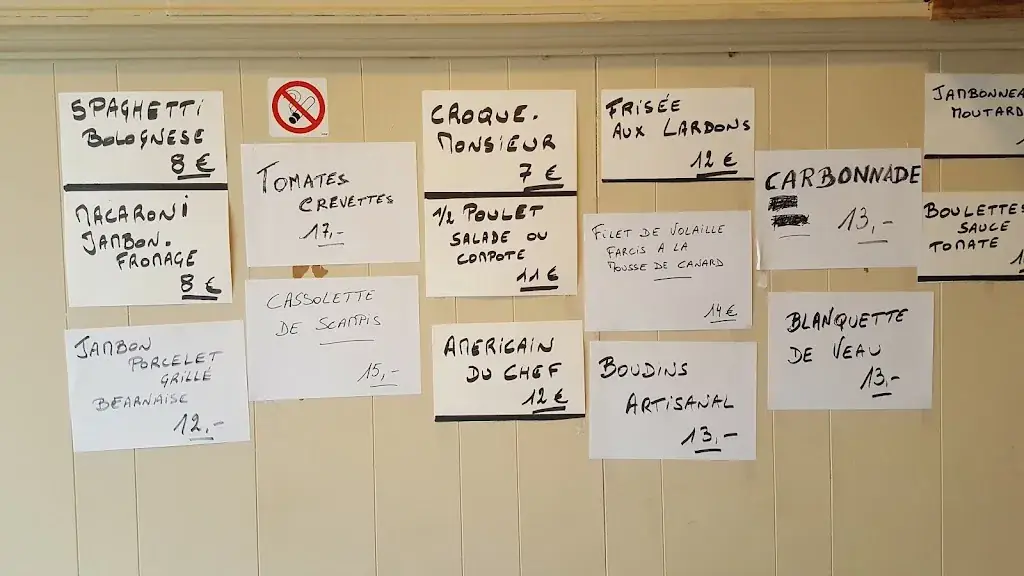 SPAGHETTI
BOLOGNESE
8 €
MACARONI
JAMBON.
FROMAGE
8 €
JAMBON
PORCELET
GRILLÉ
BEARNAISE
12,-
TOMATES
CREVETTES
17,-
CASSOLETTE
DE SCAMPIS
15,-
CROQUE.
MONSIEUR
7 €
1/2 POULET
SALADE OU
COMPOTE
11 €
AMERICAIN
DU CHEF
12 €
FRISÉE
AUX LARDONS
12 €
FILET DE VOLAILLE
FARCIS A LA
MOUSSE DE CANARD
14 €
BOUDINS
ARTISANAL
13,-
CARBONNADE
13,-
BLANQUETTE
DE VEAU
13,-
JAMBONNEA
MOUTARD
BOULETTES
SAUCE
TOMATE